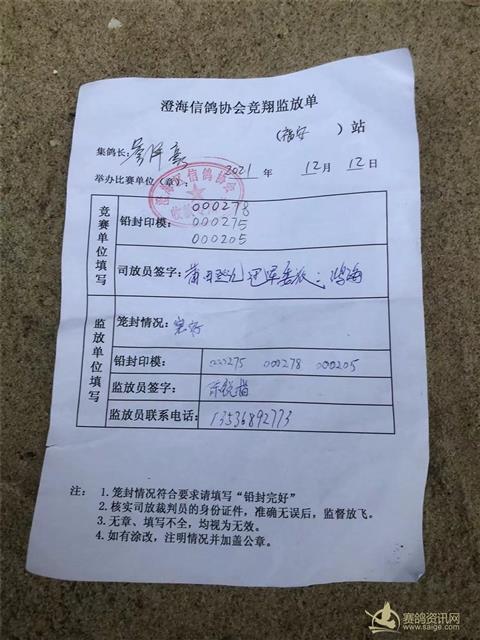 澄海信鸽协会竞翔监放单
(福安 )站
集鸽长:
2021 年 12 月 12 日
举办比赛单位(章):
信鸽协会
竞赛单位填写
铅封印模:
000278
000275
000205
司放员签字:
监放单位填写
笼封情况: 完好
铅封印模: 000275 000278 000205
监放员签字:
监放员联系电话: 13536892773
注: 1. 笼封情况符合要求请填写“铅封完好”
2. 核实司放裁判员的身份证件，准确无误后，监督放飞。
3. 无章、填写不全，均视为无效。
4. 如有涂改，注明情况并加盖公章。
赛鸽资讯网
www.saige.com